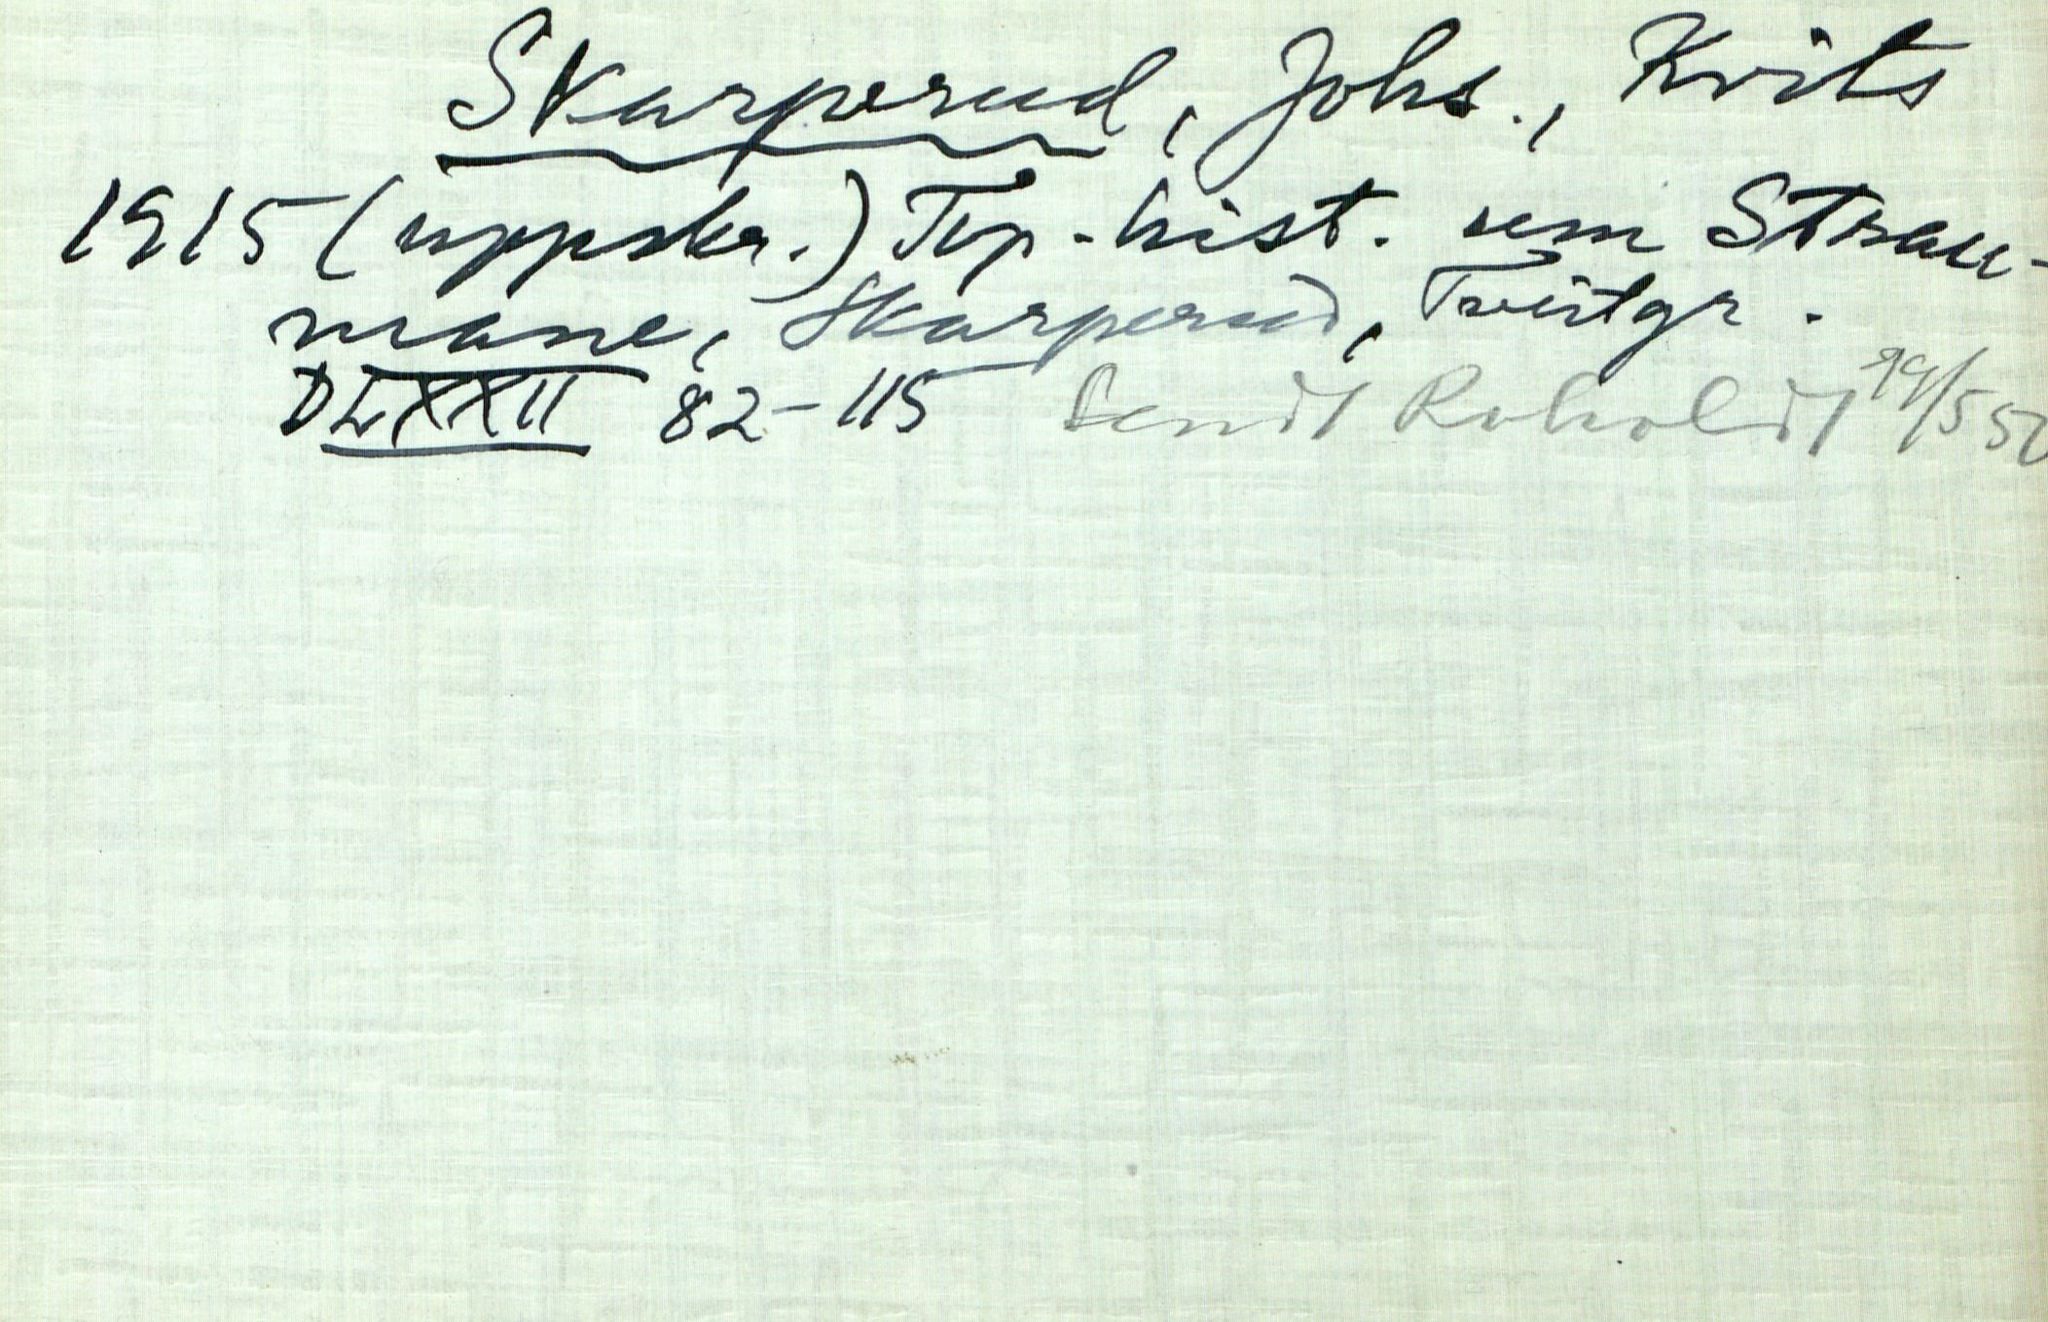 Skarperud, Johs., Kvits
1915 (uppskr.) Tip.-hist. um Strau-
mane, Skarperud, Tveitgr.
DLXXII 82-115 Sendt Roholdt 19/5 50